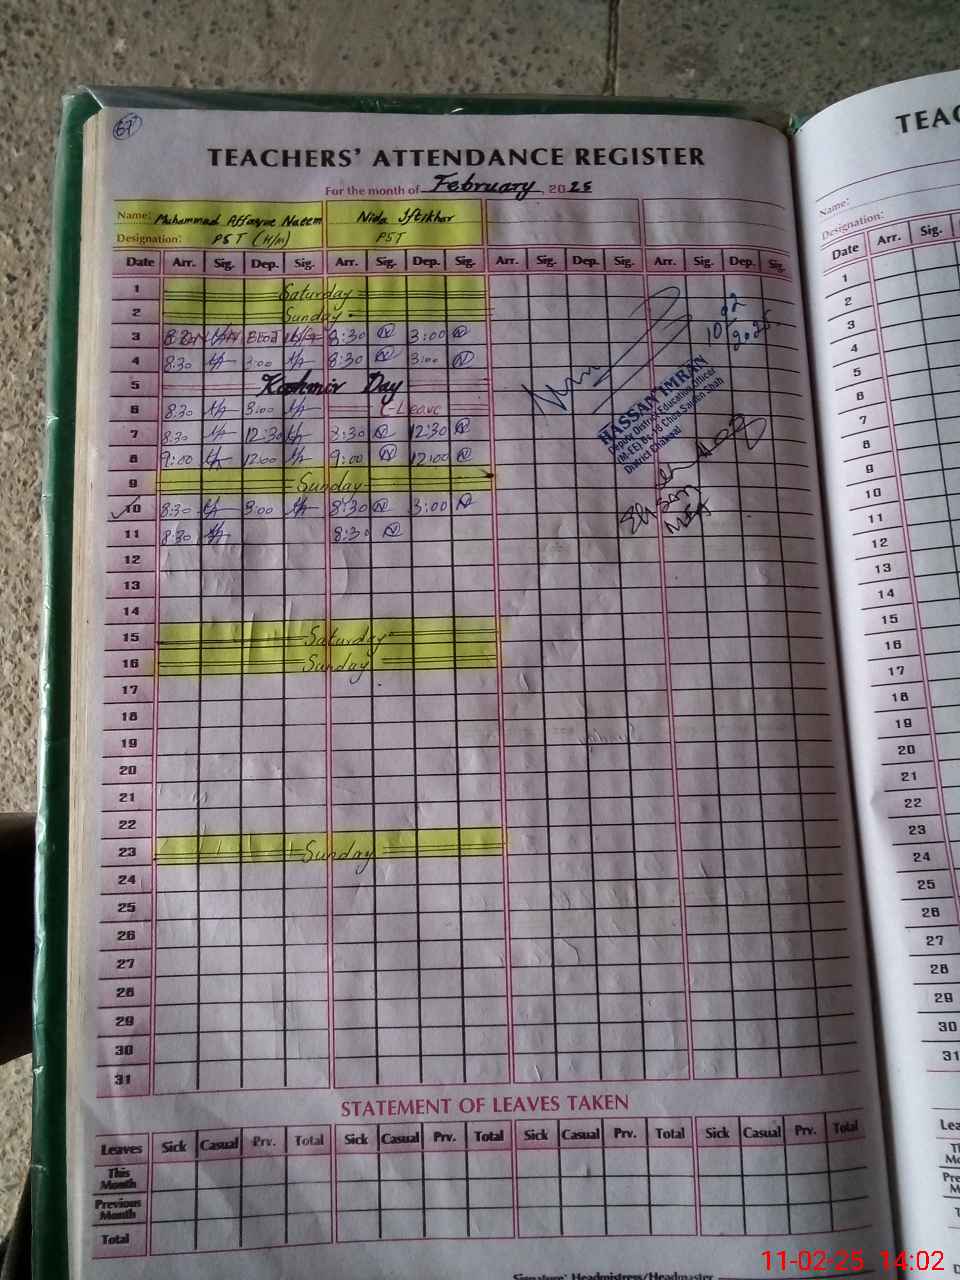 67
TEACHERS' ATTENDANCE REGISTER
For the month of February, 2025
Name: Muhammad Affaque Naeem Nida Iftikhar
Designation: PST (H/m) PST
Date Arr. Sig. Dep. Sig. Arr. Sig. Dep. Sig. Arr. Sig. Dep. Sig. Arr. Sig. Dep. Sig.
1 Saturday
2 Sunday
3 8:30 3:00
4 8:30 3:00 8:30 3:00
5 Kashmir Day
6 8:30 3:00 C-Leave
7 8:30 12:30 8:30 12:30
8 9:00 12:00 9:00 12:00
9 Sunday
10 8:30 3:00 8:30 3:00
11 8:30 8:30
12
13
14
15 Saturday
16 Sunday
17
18
19
20
21
22
23 Sunday
24
25
26
27
28
29
30
31
10 02 2025
HASSAN IMRAN
Deputy District Education Officer
(M-EE) Choa Saidan Shah
District Chakwal
STATEMENT OF LEAVES TAKEN
Leaves Sick Casual Prv. Total Sick Casual Prv. Total Sick Casual Prv. Total Sick Casual Prv. Total
This Month
Previous Month
Total
Signature: Headmistress/Headmaster
TEAC
Name:
Designation:
Date Arr. Sig.
1
2
3
4
5
6
7
8
9
10
11
12
13
14
15
16
17
18
19
20
21
22
23
24
25
26
27
28
29
30
31
11-02-25 14:02